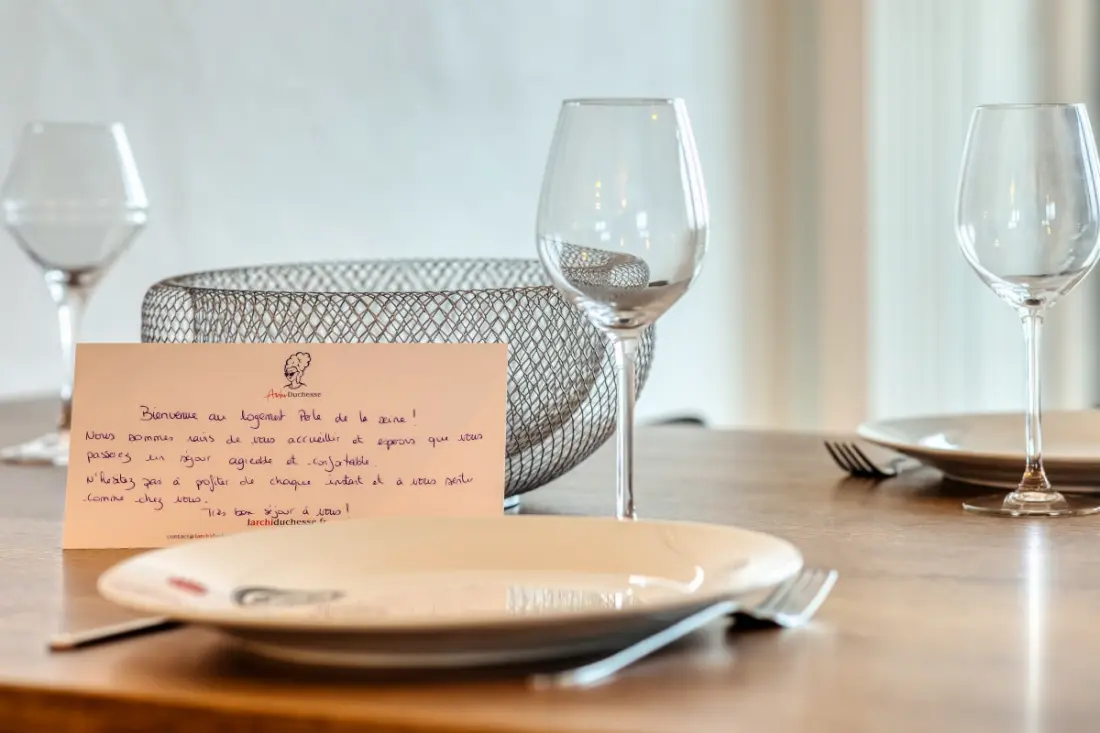 ArchiDuchesse
Bienvenue au logement Pole de la Seine !
Nous sommes ravis de vous accueillir et espérons que vous
passerez un séjour agréable et confortable.
N'hésitez pas à profiter de chaque instant et à vous sentir
comme chez vous.
Très bon séjour à vous !
larchiduchesse.fr